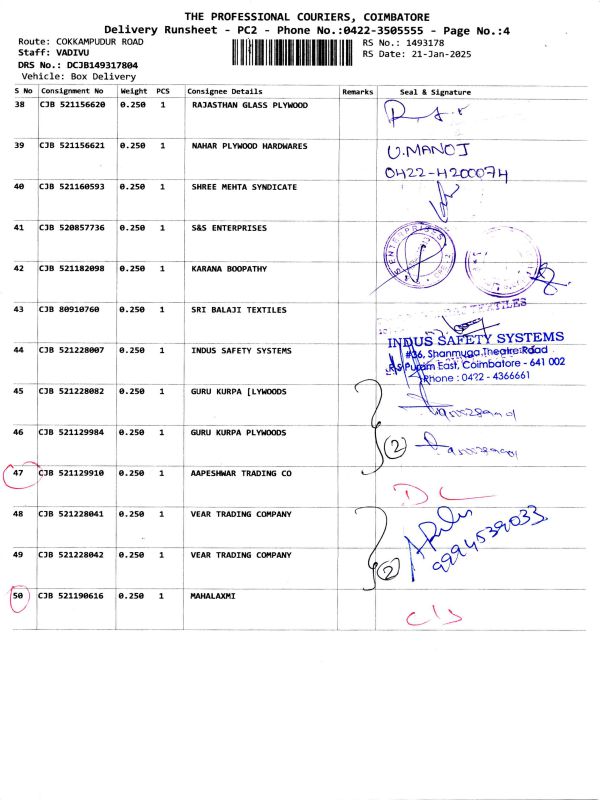 THE PROFESSIONAL COURIERS, COIMBATORE
Delivery Runsheet - PC2 - Phone No.:0422-3505555 - Page No.:4
Route: COKKAMPUDUR ROAD
RS No.: 1493178
Staff: VADIVU
RS Date: 21-Jan-2025
DRS No.: DCJB149317804
Vehicle: Box Delivery
S No Consignment No Weight PCS Consignee Details Remarks Seal & Signature
38 CJB 521156620 0.250 1 RAJASTHAN GLASS PLYWOOD
39 CJB 521156621 0.250 1 NAHAR PLYWOOD HARDWARES U.MANOJ
0422-4200074
40 CJB 521160593 0.250 1 SHREE MEHTA SYNDICATE
41 CJB 520857736 0.250 1 S&S ENTERPRISES ENTERPRISES
42 CJB 521182098 0.250 1 KARANA BOOPATHY
43 CJB 80910760 0.250 1 SRI BALAJI TEXTILES TEXTILES
44 CJB 521228007 0.250 1 INDUS SAFETY SYSTEMS INDUS SAFETY SYSTEMS
#36, Shanmuga Theatre Road
R.S Puram East, Coimbatore - 641 002
Phone : 0422 - 4366661
45 CJB 521228082 0.250 1 GURU KURPA [LYWOODS
46 CJB 521129984 0.250 1 GURU KURPA PLYWOODS 2
47 CJB 521129910 0.250 1 AAPESHWAR TRADING CO DL
48 CJB 521228041 0.250 1 VEAR TRADING COMPANY 9994539033
49 CJB 521228042 0.250 1 VEAR TRADING COMPANY 2
50 CJB 521190616 0.250 1 MAHALAXMI